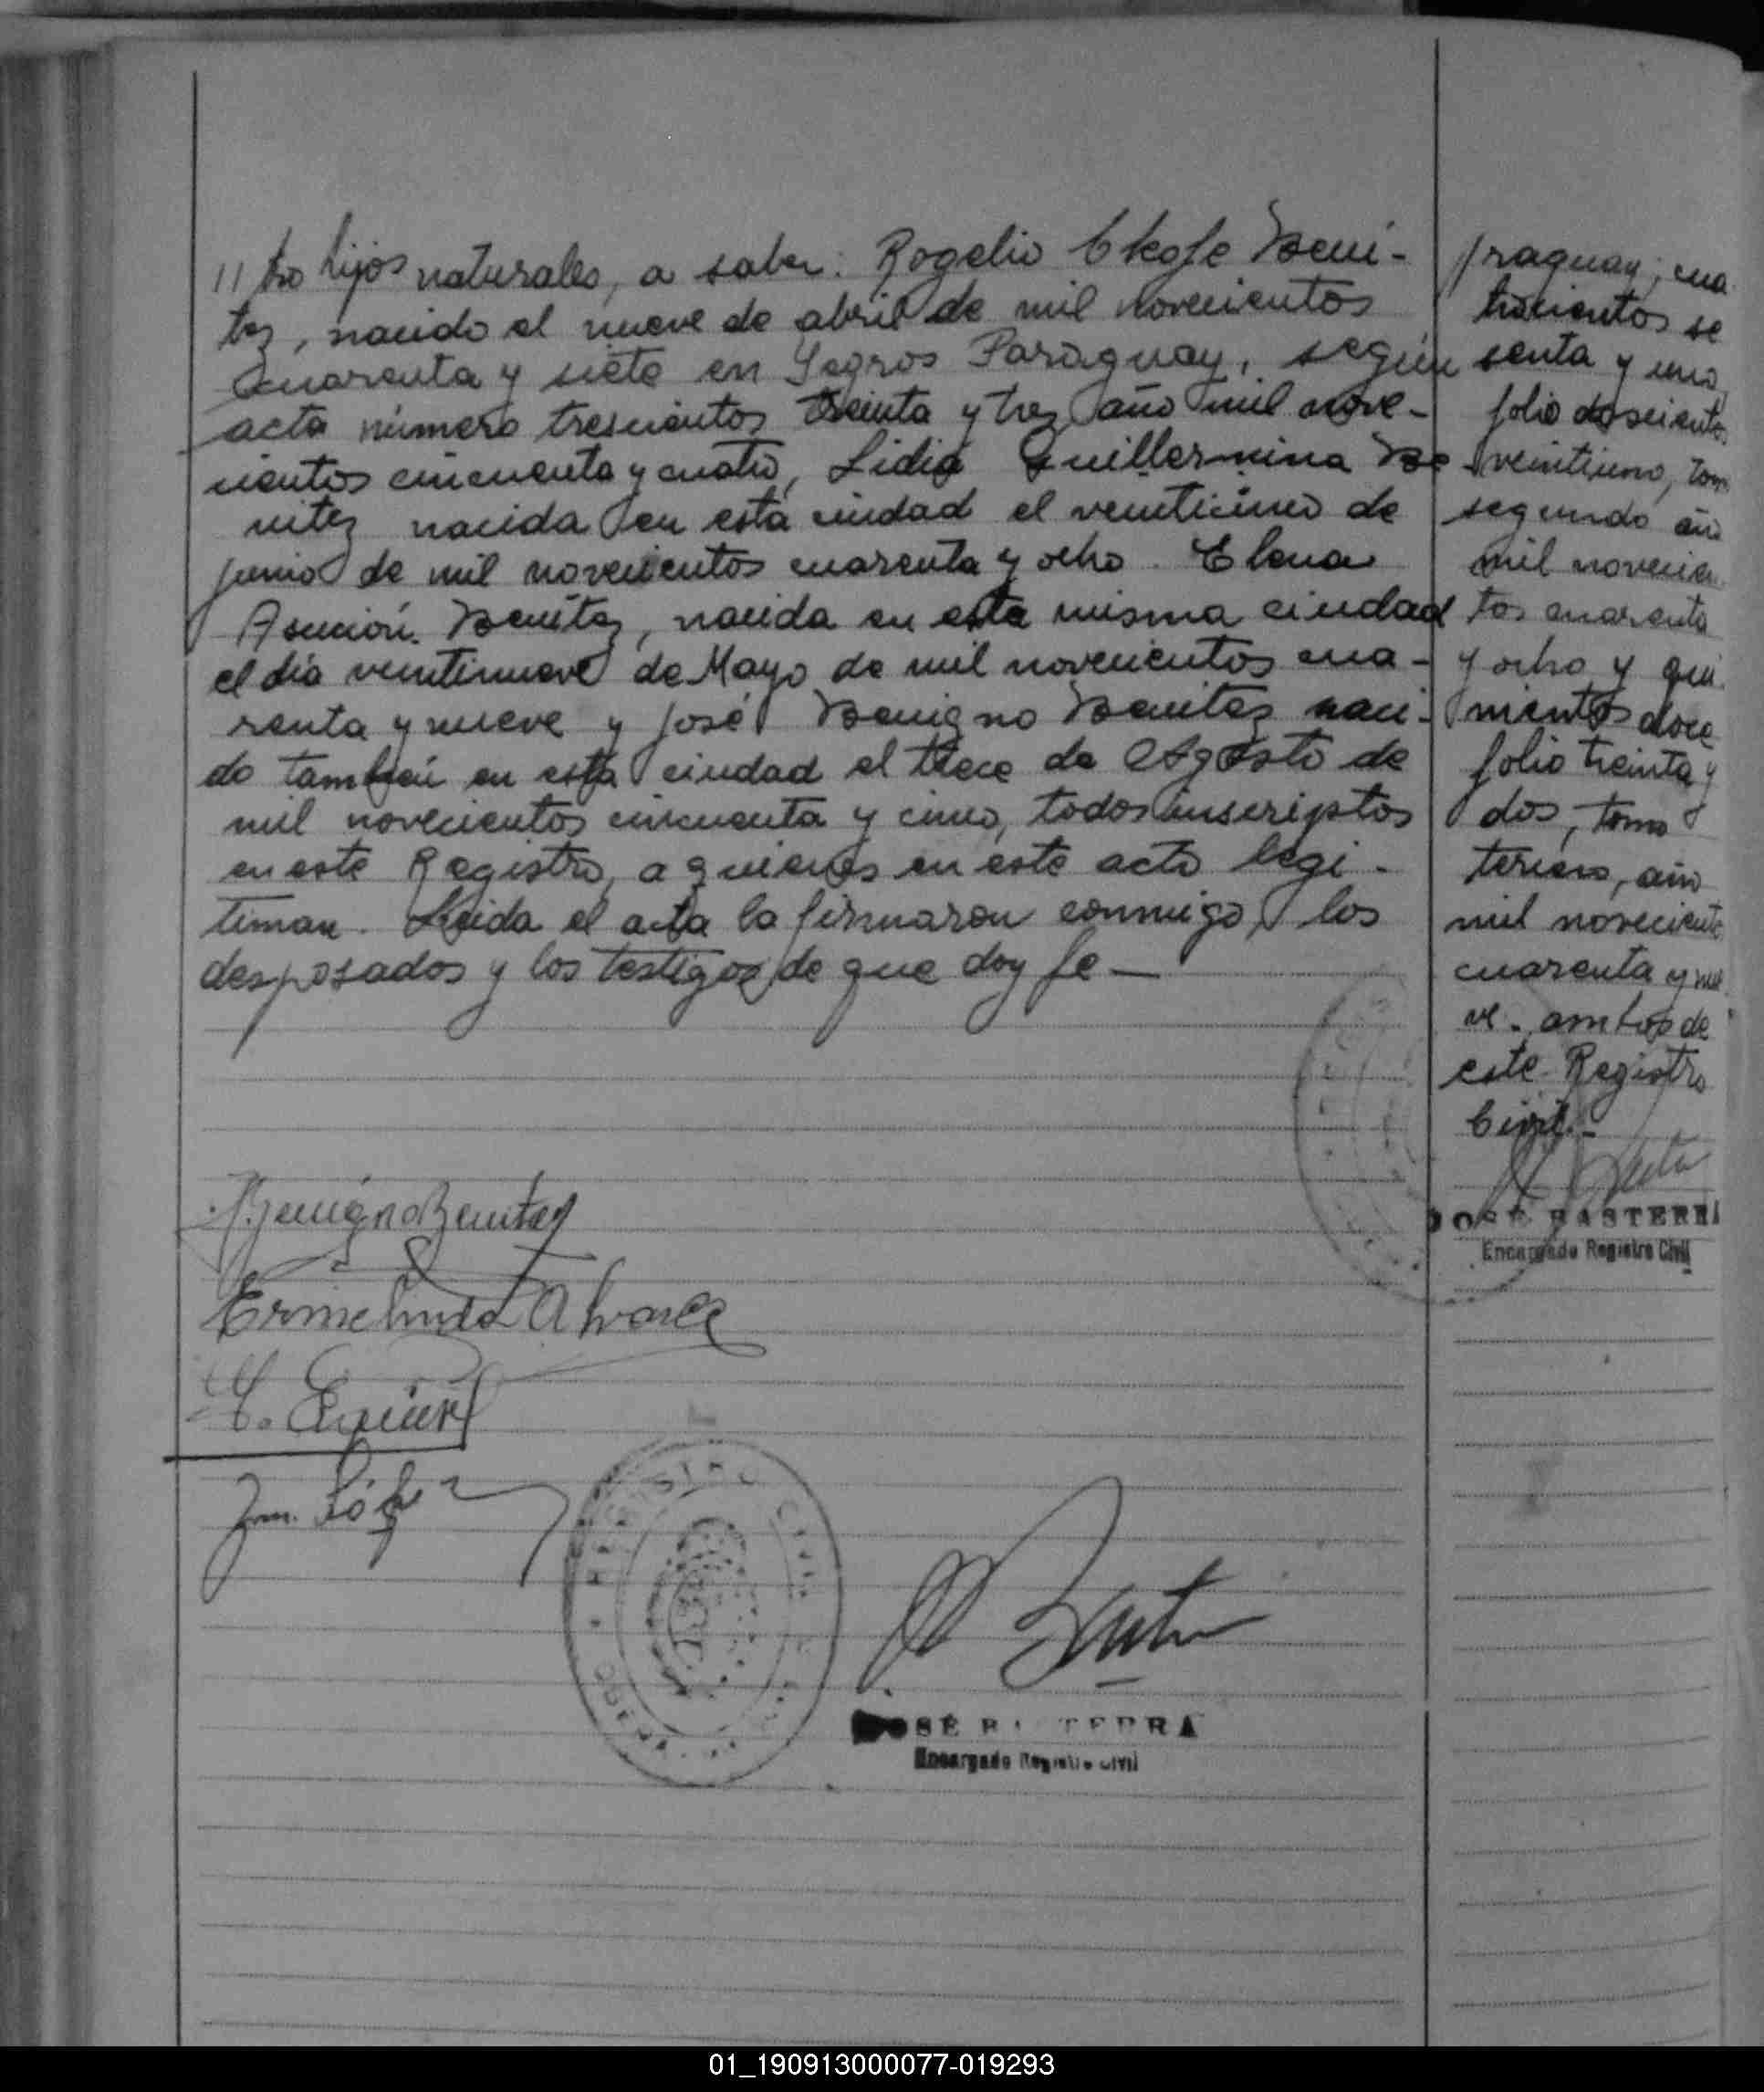 // tro hijos naturales, a saber: Rogelio Cleofe Beni-
tez, nacido el nueve de abril de mil novecientos
cuarenta y siete en Yegros Paraguay, según
acta número trescientos treinta y tres año mil nove-
cientos cincuenta y cuatro, Lidia Guillermina Be-
nitez nacida en esta ciudad el veinticinco de
junio de mil novecientos cuarenta y ocho. Elena
Asunción Benitez, nacida en esta misma ciudad
el día veintinueve de Mayo de mil novecientos cua-
renta y nueve y José Benigno Benitez naci-
do también en esta ciudad el trece de Agosto de
mil novecientos cincuenta y cinco, todos inscriptos
en este Registro, a quienes en este acto legi-
timan. Leida el acta la firmaron conmigo, los
desposados y los testigos de que doy fe —
//raguay; cua-
trocientos se
senta y uno,
folio doscientos
veintiuno, tomo
segundo año
mil novecien-
tos cuarenta
y ocho y qui-
nientos doce
folio treinta y
dos, tomo
tercero, año
mil novecientos
cuarenta y nue
ve. ambos de
este Registro
Civil.-
JOSÉ BASTERRA
Encargado Registro Civil
Benigno Benitez
Ermelinda Alvarez
Jm. López
REGISTRO CIVIL
JOSÉ BASTERRA
Encargado Registro Civil
01_190913000077-019293